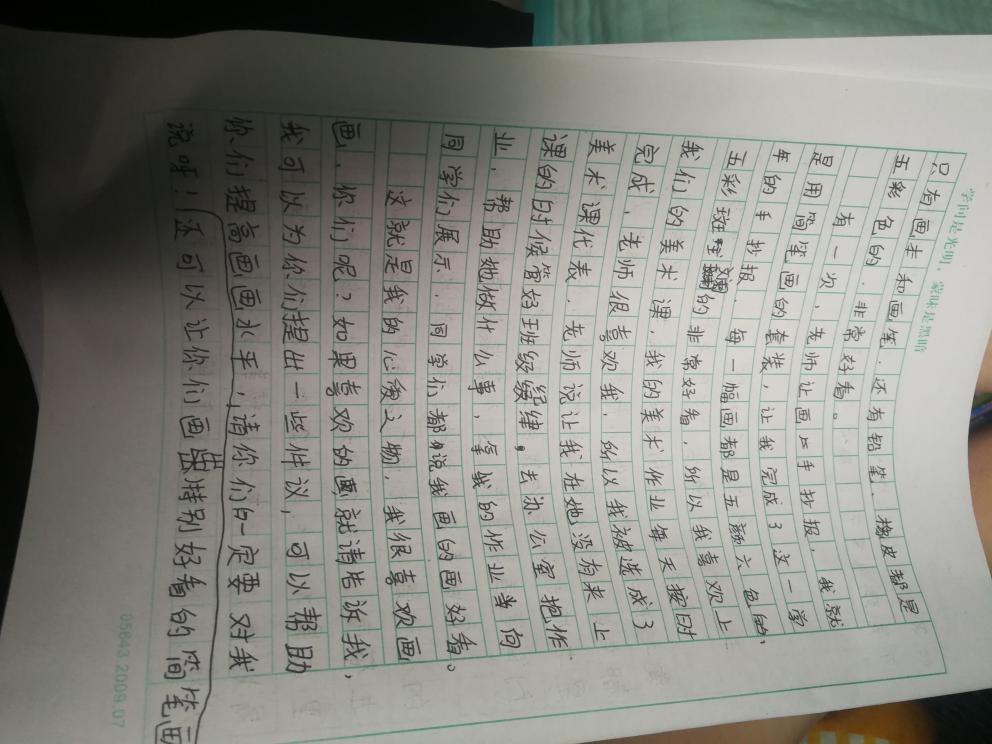 学问是光明，蒙昧是黑暗
只有画本和画笔．还有铅笔、橡皮都是
五彩色的．非常好看。
有一次，老师让画一手抄报，我就
是用简笔画的套装，让我完成了这一学
年的手抄报．每一幅画都是五颜六色的，
五彩斑斓的非常好看，所以我喜欢上
我们的美术课，我的美术作业每天按时
完成，老师很喜欢我．所以我被选成了
美术课代表．老师说让我在她没有来上
课的时候管好班级纪律，去办公室抱作
业，帮助她做什么事，拿我的作业当向
同学们展示．同学们都说我画的画好看。
这就是我的心爱之物，我很喜欢画
画，你们呢？如果喜欢的画就请告诉我，
我可以为你们提出一些件议，可以帮助
你们提高画画水平，请你们一定要对我
说呀！还可以让你们画出特别好看的简笔画
05843 2009.07